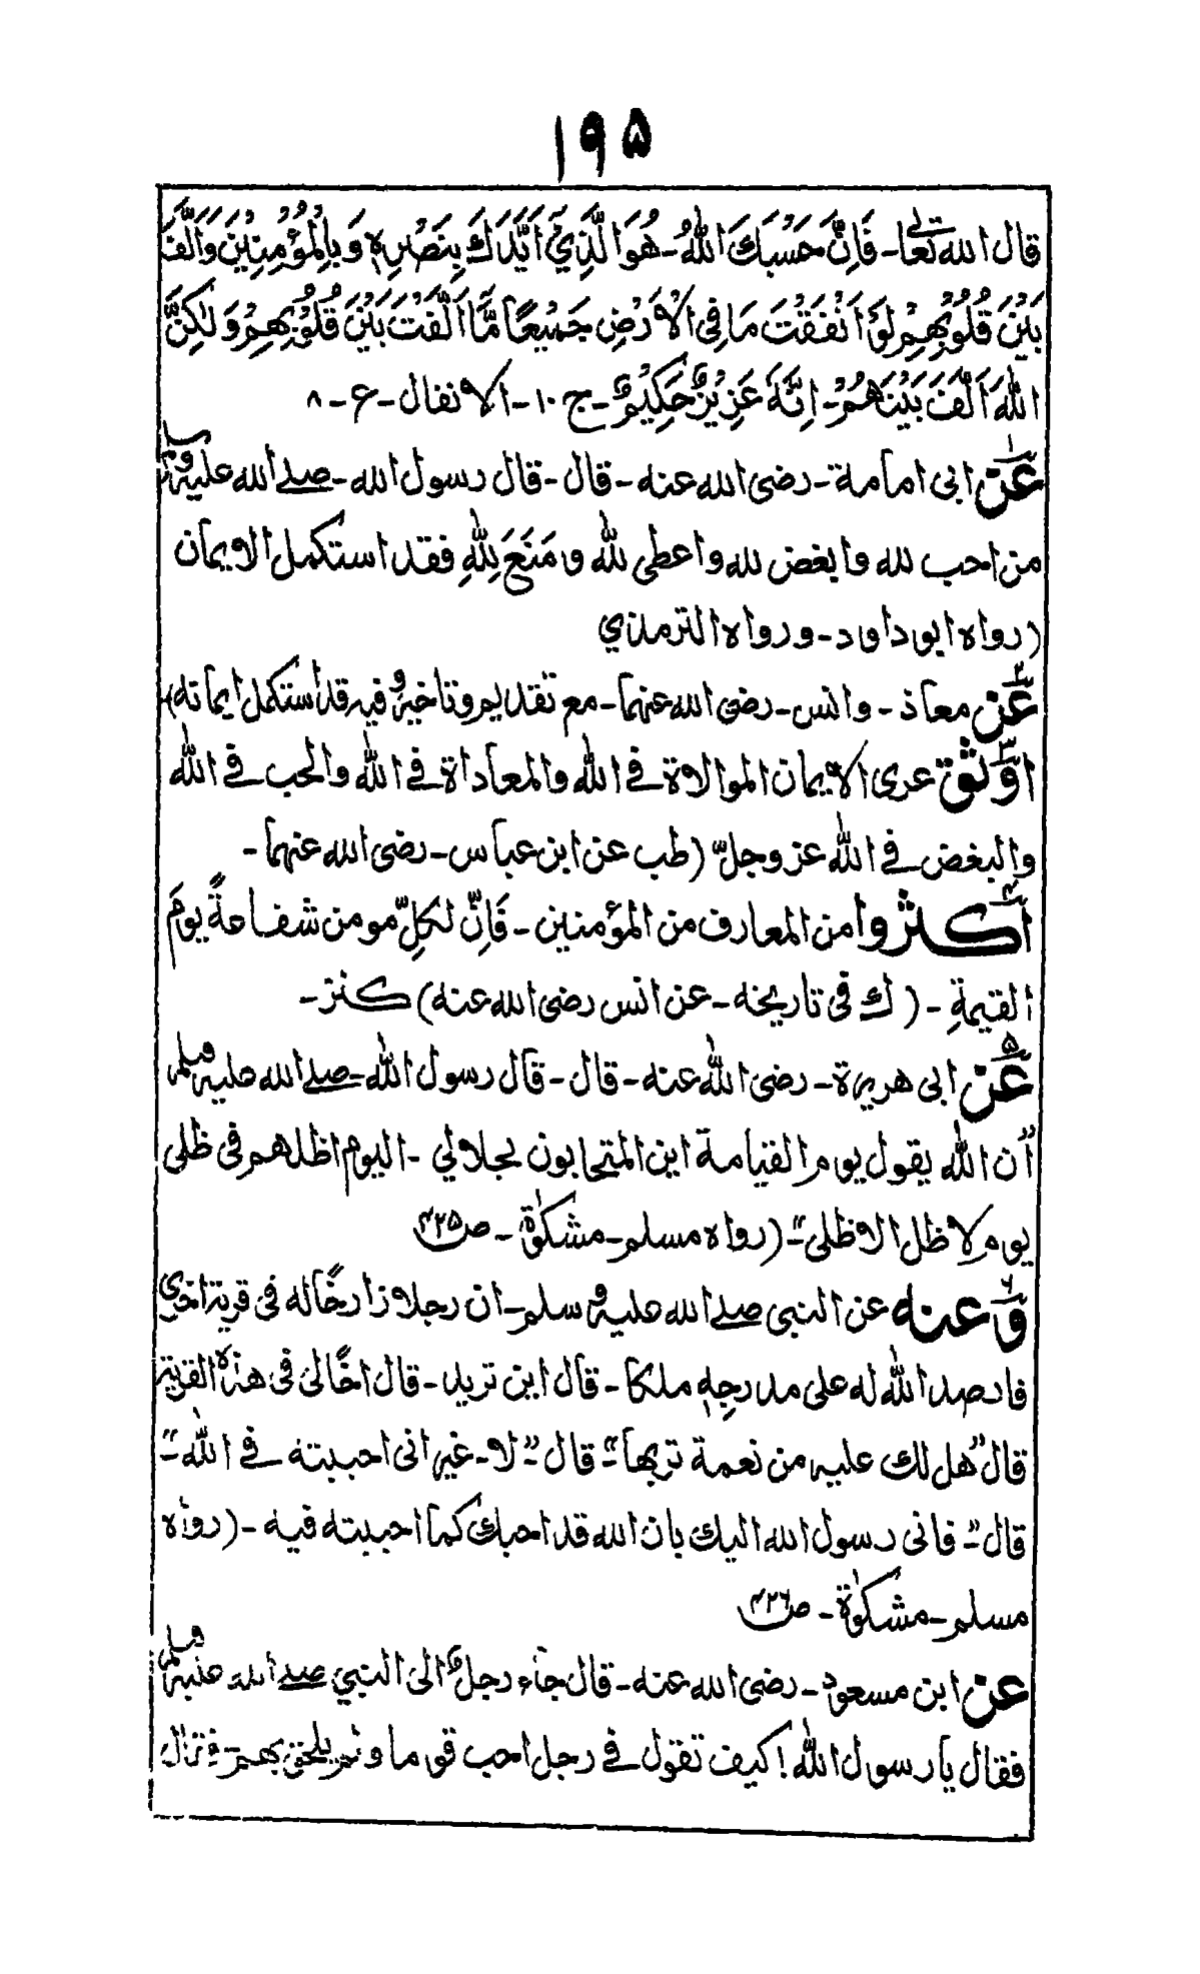 ۱۹۵
قال الله تعالٰی۔ فَاِنَّ حَسْبَكَ اللّٰهُ۔ هُوَ الَّذِيْٓ اَيَّدَكَ بِنَصْرِهٖ وَبِالْمُؤْمِنِيْنَ وَاَلَّفَ
بَيْنَ قُلُوْبِهِمْ لَوْ اَنْفَقْتَ مَا فِي الْاَرْضِ جَمِيْعًا مَّا اَلَّفْتَ بَيْنَ قُلُوْبِهِمْ وَلٰكِنَّ
اللّٰهَ اَلَّفَ بَيْنَهُمْ۔ اِنَّهٗ عَزِيْزٌ حَكِيْمٌ۔ ج ۱۰۔ الانفال۔ ع۔ ۸
۱ عَنْ ابی امامة۔ رضی الله عنه۔ قال۔ قال رسول الله۔ صلے الله علیه وسلم
من احب لله وابغض لله واعطی لله ومَنَعَ لِلّٰهِ فقد استکمل الایمان
(رواه ابوداود۔ ورواه الترمذي
۲ عَن معاذ۔ وانس۔ رضی الله عنهما۔ مع تقدیم وتاخیر وفیه قد استکمل ایمانه)
۳ اوثق عری الایمان الموالاة فے الله والمعاداة فے الله والحب فے الله
والبغض فے الله عز وجلّ (طب عن ابن عباس۔ رضی الله عنهما۔
۴ اکثروا من المعارف من المؤمنین۔ فَاِنّ لکلِّ مومن شفاعةً یومَ
القیمةِ۔ (ك فی تاریخه۔ عن انس رضی الله عنه) کنز۔
۵ عَنْ ابی هریرة۔ رضی الله عنه۔ قال۔ قال رسول الله۔ صلے الله علیه وسلم
"ان الله یقول یوم القیامة این المتحابون بجلالي۔ الیوم اظلهم فی ظلی
یوم لا ظل الا ظلی"۔ (رواه مسلم۔ مشکوٰة۔ ص ۴۲۵
۶ وَعنه عن النبی صلے الله علیه وسلم۔ ان رجلا زار اخًا له فی قریة اخری
فارصد الله له علی مدرجِهٖ ملکا۔ قال این ترید۔ قال اخًا لی فی هذه القریة
قال "هل لك علیه من نعمة تربها"۔ قال"۔ لا۔ غیر انی احببته فے الله"۔
قال"۔ فانی رسول الله الیك بان الله قد احبك کما احببته فیه۔ (رواه
مسلم۔ مشکوٰة۔ ص ۴۲۶
عن ابن مسعود۔ رضی الله عنه۔ قال جآء رجلٌ الی النبي صلے الله علیه وسلم
فقال یا رسول الله! کیف تقول فے رجل احب قوما ولم یلحق بهم۔ فقال